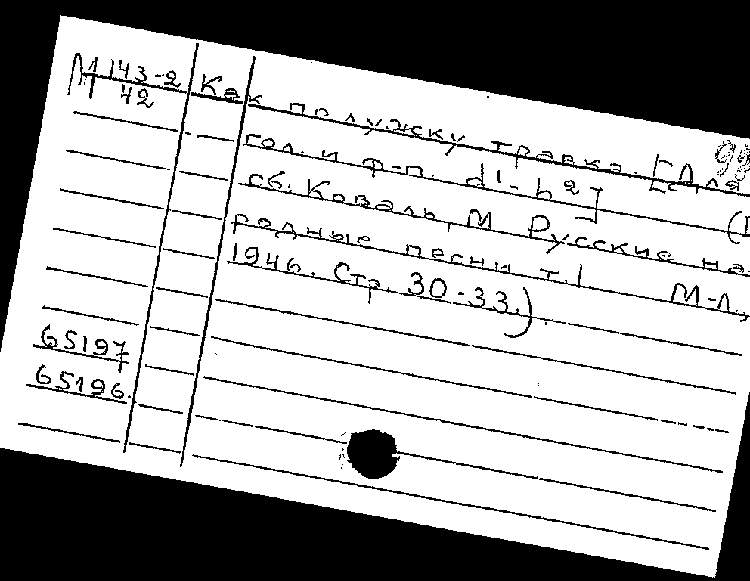 М 143-2
42
Как по лужку травка. [Для
гол. и ф-п. d'-h²] (
сб. Коваль, М Русские на
родные песни т. I М-Л.,
1946. Стр. 30-33.).
65197
65196.